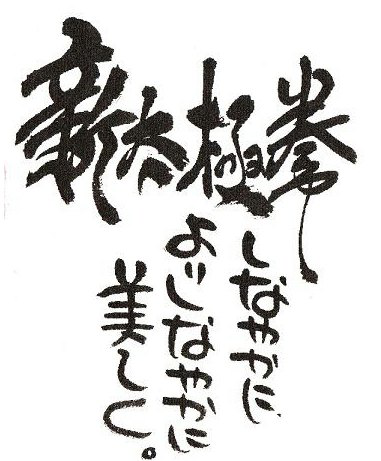 新太極拳
しなやかに
よりしなやかに
美しく。